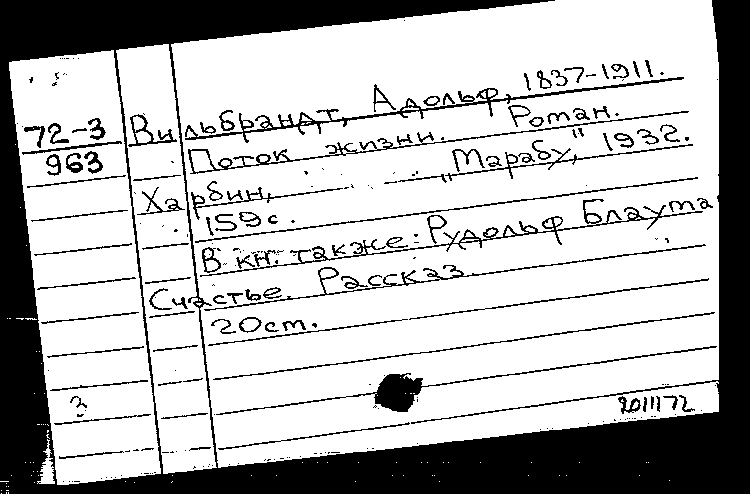 Вильбрандт, Адольф, 1837-1911.
72-3
963
Поток жизни. Роман.
Харбин, "Марабу," 1932.
159с.
В кн. также: Рудольф Блаута
Счастье. Рассказ.
20см.
3
201172